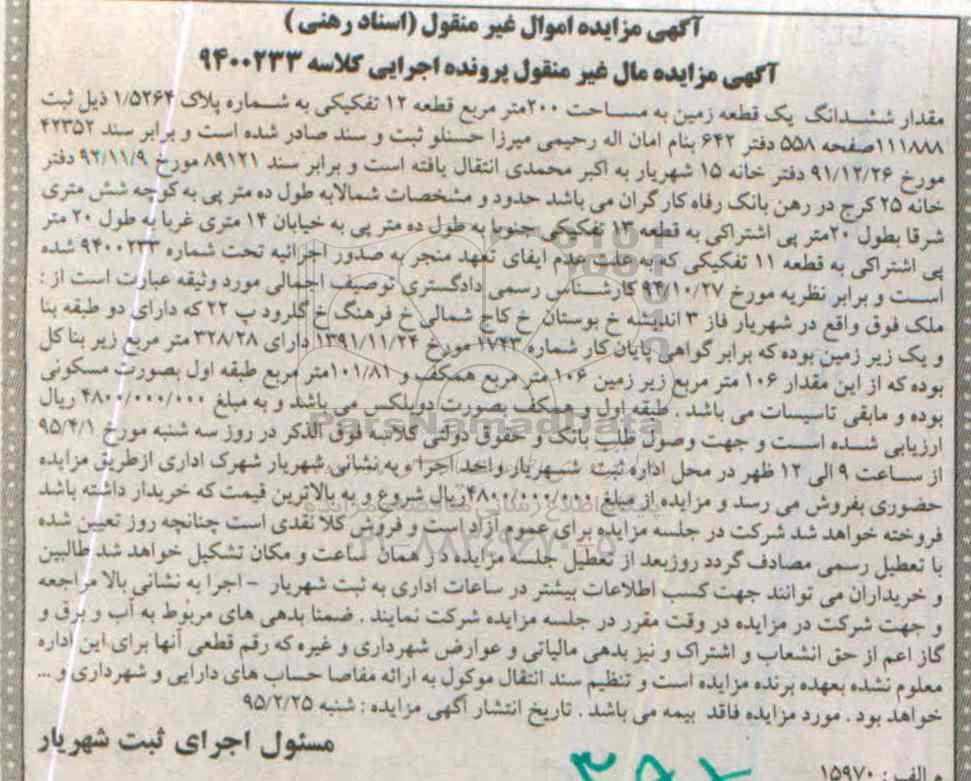 آگهی مزایده اموال غیر منقول (اسناد رهنی)
آگهی مزایده مال غیر منقول پرونده اجرایی کلاسه ۹۴۰۰۲۳۳
مقدار ششدانگ یک قطعه زمین به مساحت ۲۰۰متر مربع قطعه ۱۲ تفکیکی به شماره پلاک ۱/۵۲۶۴ ذیل ثبت
۱۱۱۸۸۸صفحه ۵۵۸ دفتر ۶۴۲ بنام امان اله رحیمی میرزا حسنلو ثبت و سند صادر شده است و برابر سند ۴۲۳۵۲
مورخ ۹۱/۱۲/۲۶ دفتر خانه ۱۵ شهریار به اکبر محمدی انتقال یافته است و برابر سند ۸۹۱۲۱ مورخ ۹۲/۱۱/۹ دفتر
خانه ۲۵ کرج در رهن بانک رفاه کارگران می باشد حدود و مشخصات شمالابه طول ده متر پی به کوچه شش متری
شرقا بطول ۲۰متر پی اشتراکی به قطعه ۱۳ تفکیکی جنوبا به طول ده متر پی به خیابان ۱۴ متری غربا به طول ۲۰ متر
پی اشتراکی به قطعه ۱۱ تفکیکی که به علت عدم ایفای تعهد منجر به صدور اجرائیه تحت شماره ۹۴۰۰۲۳۳ شده
است و برابر نظریه مورخ ۹۴/۱۰/۲۷ کارشناس رسمی دادگستری توصیف اجمالی مورد وثیقه عبارت است از :
ملک فوق واقع در شهریار فاز ۳ اندیشه خ بوستان خ کاج شمالی خ فرهنگ خ گلرود پ ۲۲ که دارای دو طبقه بنا
و یک زیر زمین بوده که برابر گواهی پایان کار شماره ۱۷۴۳ مورخ ۱۳۹۱/۱۱/۲۴ دارای ۳۲۸/۲۸ متر مربع زیر بنا کل
بوده که از این مقدار ۱۰۶ متر مربع زیر زمین ۱۰۶ متر مربع همکف و ۱۰۱/۸۱متر مربع طبقه اول بصورت مسکونی
بوده و مابقی تاسیسات می باشد . طبقه اول و همکف بصورت دوبلکس می باشد و به مبلغ ۴۸۰۰/۰۰۰/۰۰۰ ریال
ارزیابی شده است و جهت وصول طلب بانک و حقوق دولتی کلاسه فوق الذکر در روز سه شنبه مورخ ۹۵/۴/۱
از ساعت ۹ الی ۱۲ ظهر در محل اداره ثبت شهریار واحد اجرا و به نشانی شهریار شهرک اداری ازطریق مزایده
حضوری بفروش می رسد و مزایده از مبلغ ۴۸۰۰/۰۰۰/۰۰۰ریال شروع و به بالاترین قیمت که خریدار داشته باشد
فروخته خواهد شد شرکت در جلسه مزایده برای عموم آزاد است و فروش کلا نقدی است چنانچه روز تعیین شده
با تعطیل رسمی مصادف گردد روزبعد از تعطیل جلسه مزایده در همان ساعت و مکان تشکیل خواهد شد طالبین
و خریداران می توانند جهت کسب اطلاعات بیشتر در ساعات اداری به ثبت شهریار - اجرا به نشانی بالا مراجعه
و جهت شرکت در مزایده در وقت مقرر در جلسه مزایده شرکت نمایند . ضمنا بدهی های مربوط به آب و برق و
گاز اعم از حق انشعاب و اشتراک و نیز بدهی مالیاتی و عوارض شهرداری و غیره که رقم قطعی آنها برای این اداره
معلوم نشده بعهده برنده مزایده است و تنظیم سند انتقال موکول به ارائه مفاصا حساب های دارایی و شهرداری و ...
خواهد بود . مورد مزایده فاقد بیمه می باشد . تاریخ انتشار آگهی مزایده : شنبه ۹۵/۲/۲۵
مسئول اجرای ثبت شهریار
م الف : ۱۵۹۷۰
ParsNamadData